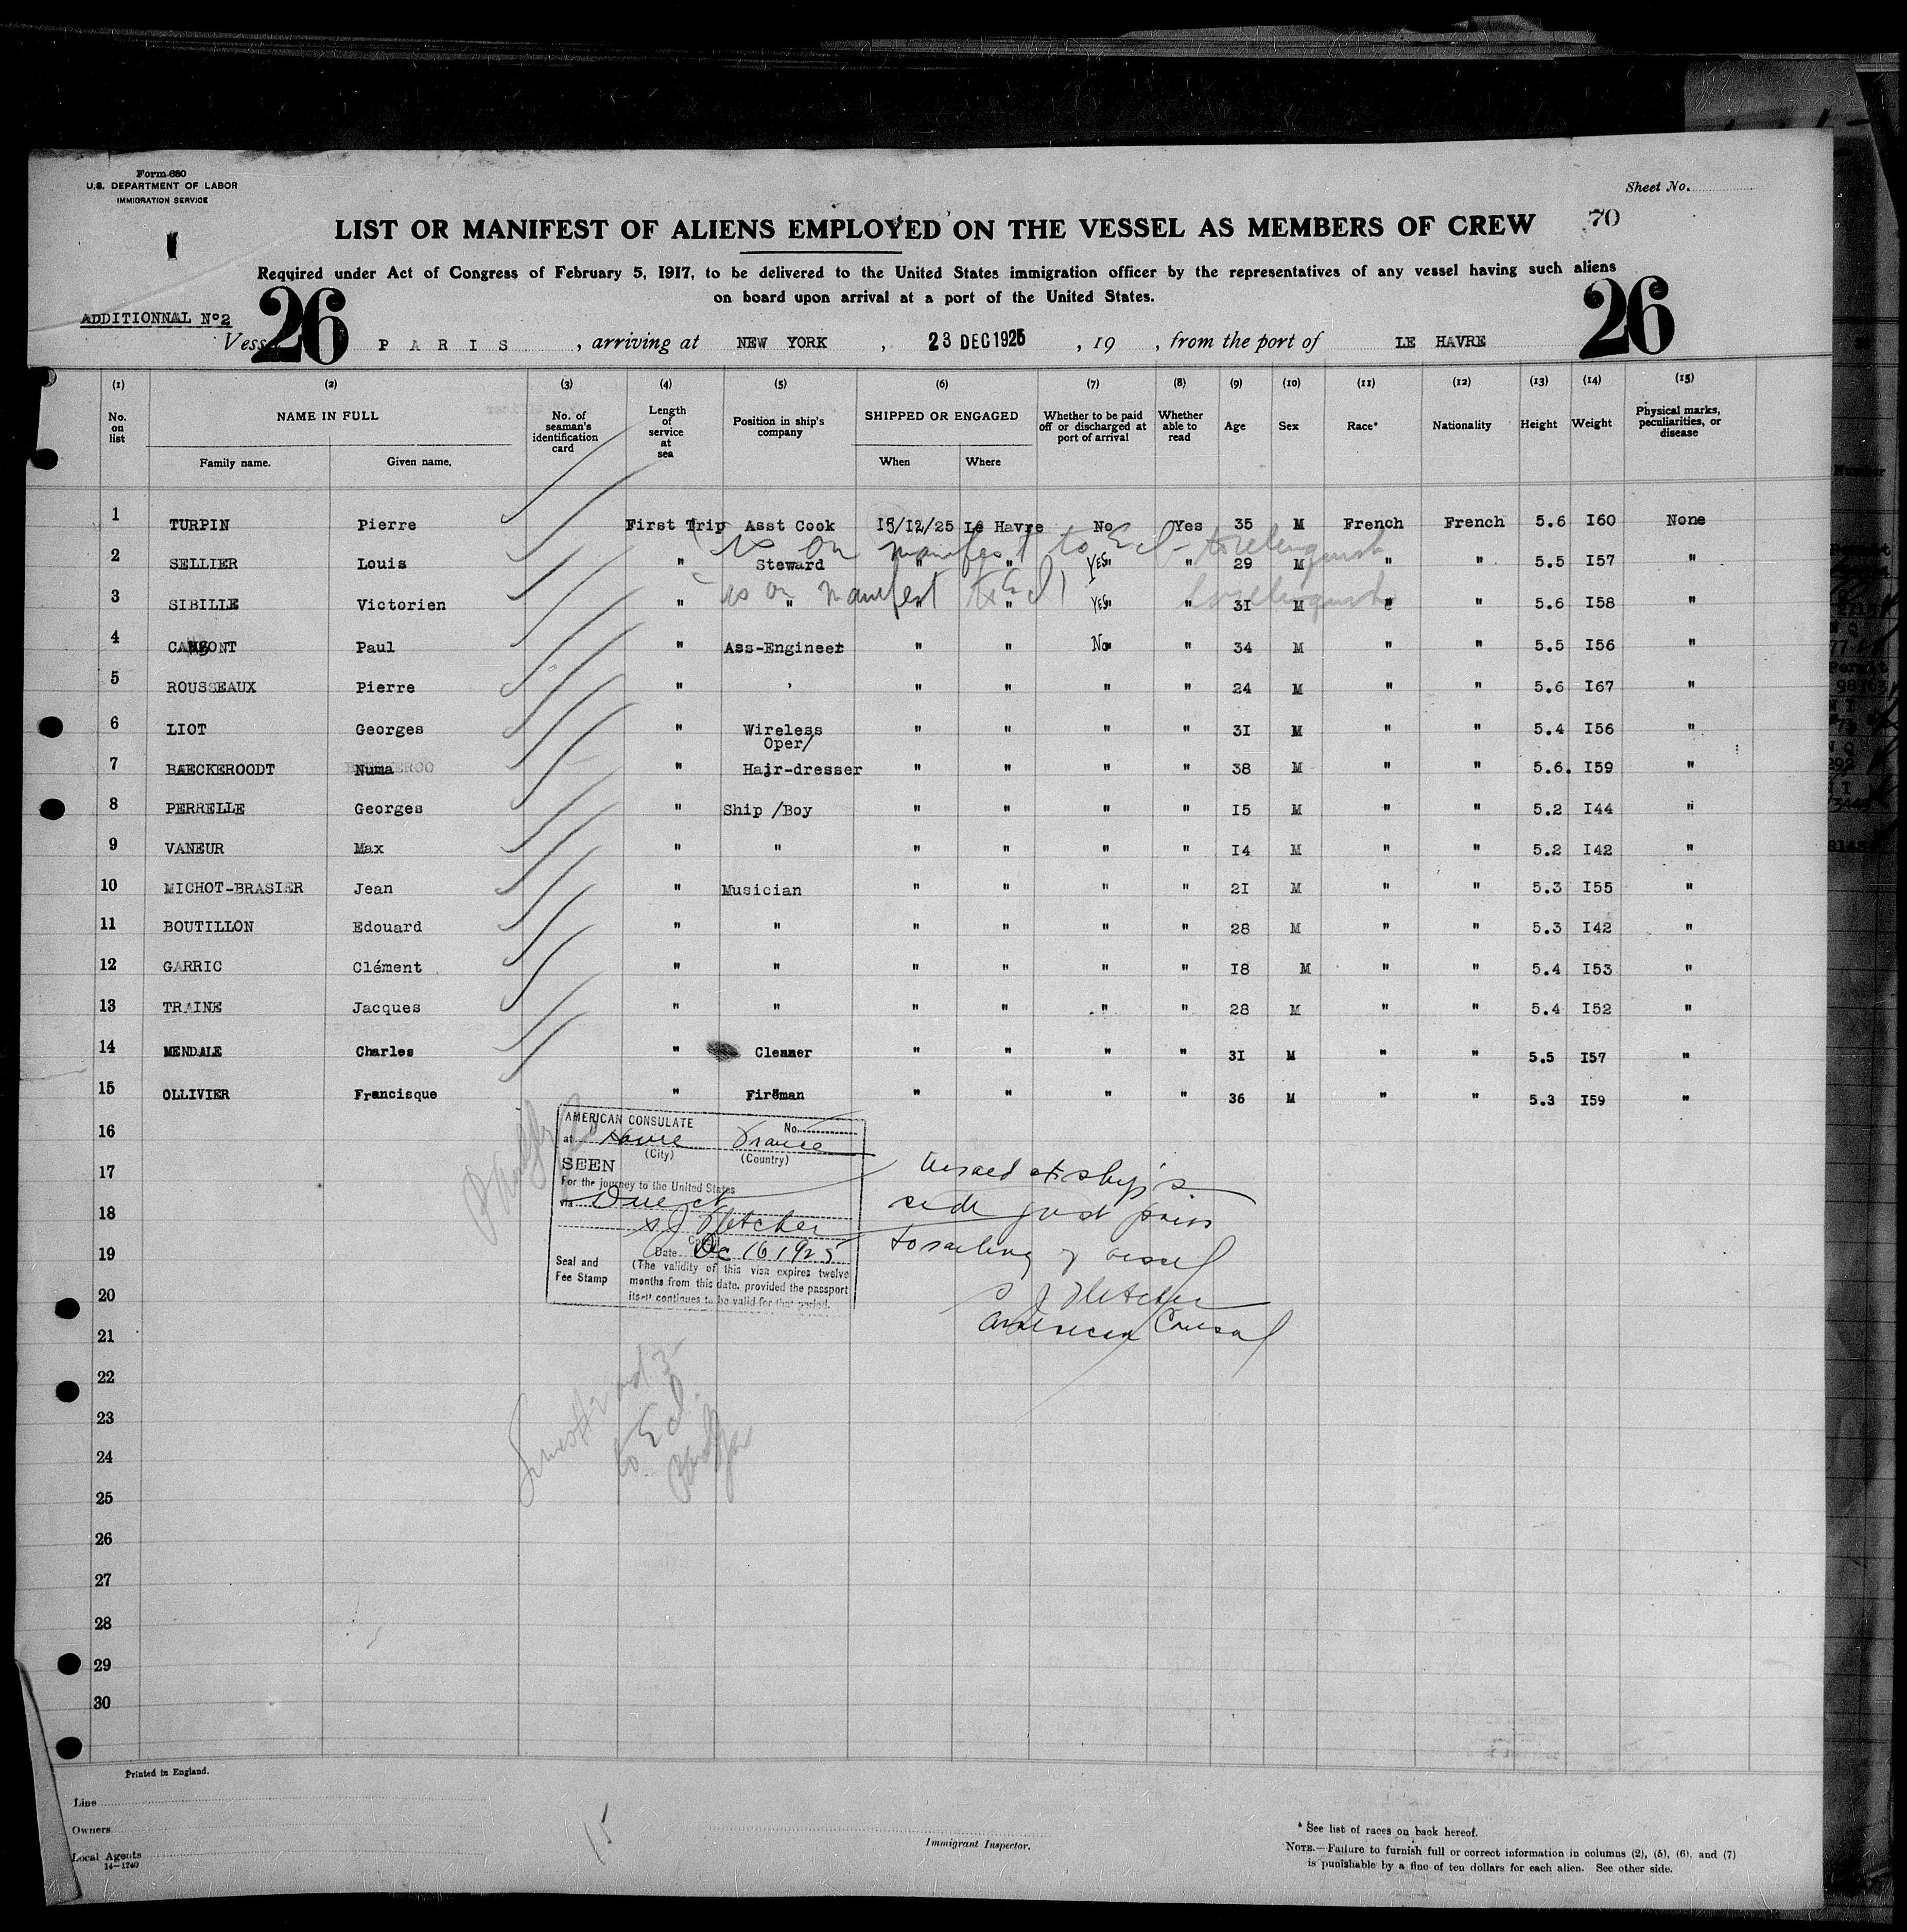 Form 680
U.S. DEPARTMENT OF LABOR
IMMIGRATION SERVICE
Sheet No.
LIST OR MANIFEST OF ALIENS EMPLOYED ON THE VESSEL AS MEMBERS OF CREW 70
Required under Act of Congress of February 5, 1917, to be delivered to the United States immigration officer by the representatives of any vessel having such aliens
on board upon arrival at a port of the United States.
ADDITIONNAL No2 26 26
Vess PARIS , arriving at NEW YORK , 23 DEC 1925 , 19 , from the port of LE HAVRE
(1) (2) (3) (4) (5) (6) (7) (8) (9) (10) (11) (12) (13) (14) (15)
No. on list NAME IN FULL Family name. Given name. No. of seaman's identification card Length of service at sea Position in ship's company SHIPPED OR ENGAGED When Where Whether to be paid off or discharged at port of arrival Whether able to read Age Sex Race* Nationality Height Weight Physical marks, peculiarities, or disease
1 TURPIN Pierre First Trip Asst Cook 15/12/25 Le Havre No Yes 35 M French French 5.6 I60 None
is on manifest to E d - to relinquish
2 SELLIER Louis " Steward " " YES " 29 M " " 5.5 I57 "
is on manifest to E d to relinquish
3 SIBILLE Victorien " " " " YES " 3I M " " 5.6 I58 "
4 Paul " Ass-Engineer " " No " 34 M " " 5.5 I56 "
5 ROUSSEAUX Pierre " ' " " " " 24 M " " 5.6 I67 "
6 LIOT Georges " Wireless Oper/ " " " " 3I M " " 5.4 I56 "
7 BAECKEROODT Numa " Hair-dresser " " " " 38 M " " 5.6. I59 "
8 PERRELLE Georges " Ship /Boy " " " " I5 M " " 5.2 I44 "
9 VANEUR Max " " " " " " I4 M " " 5.2 I42 "
10 MICHOT-BRASIER Jean " Musician " " " " 2I M " " 5.3 I55 "
11 BOUTILLON Edouard " " " " " " 28 M " " 5.3 I42 "
12 GARRIC Clément " " " " " " I8 M " " 5.4 I53 "
13 TRAINE Jacques " " " " " " 28 M " " 5.4 I52 "
14 MENDALE Charles " Cleaner " " " " 3I M " " 5.5 I57 "
15 OLLIVIER Francisque " Fireman " " " " 36 M " " 5.3 I59 "
16
17
18
19
20
21
22
23
24
25
26
27
28
29
30
AMERICAN CONSULATE No.
at Havre France
(City) (Country)
SEEN
For the journey to the United States
via Direct
S J Fletcher
Consul
Date Dec 16 1925
Seal and Fee Stamp
(The validity of this visa expires twelve
months from this date, provided the passport
itself continues to be valid for that period.
Visaed at ship's
side just prior
to sailing of vessel
S J Fletcher
American Consul
to E d
Printed in England.
Line
Owners
Local Agents
14—1240
15
Immigrant Inspector.
* See list of races on back hereof.
NOTE.—Failure to furnish full or correct information in columns (2), (5), (6), and (7)
is punishable by a fine of ten dollars for each alien. See other side.